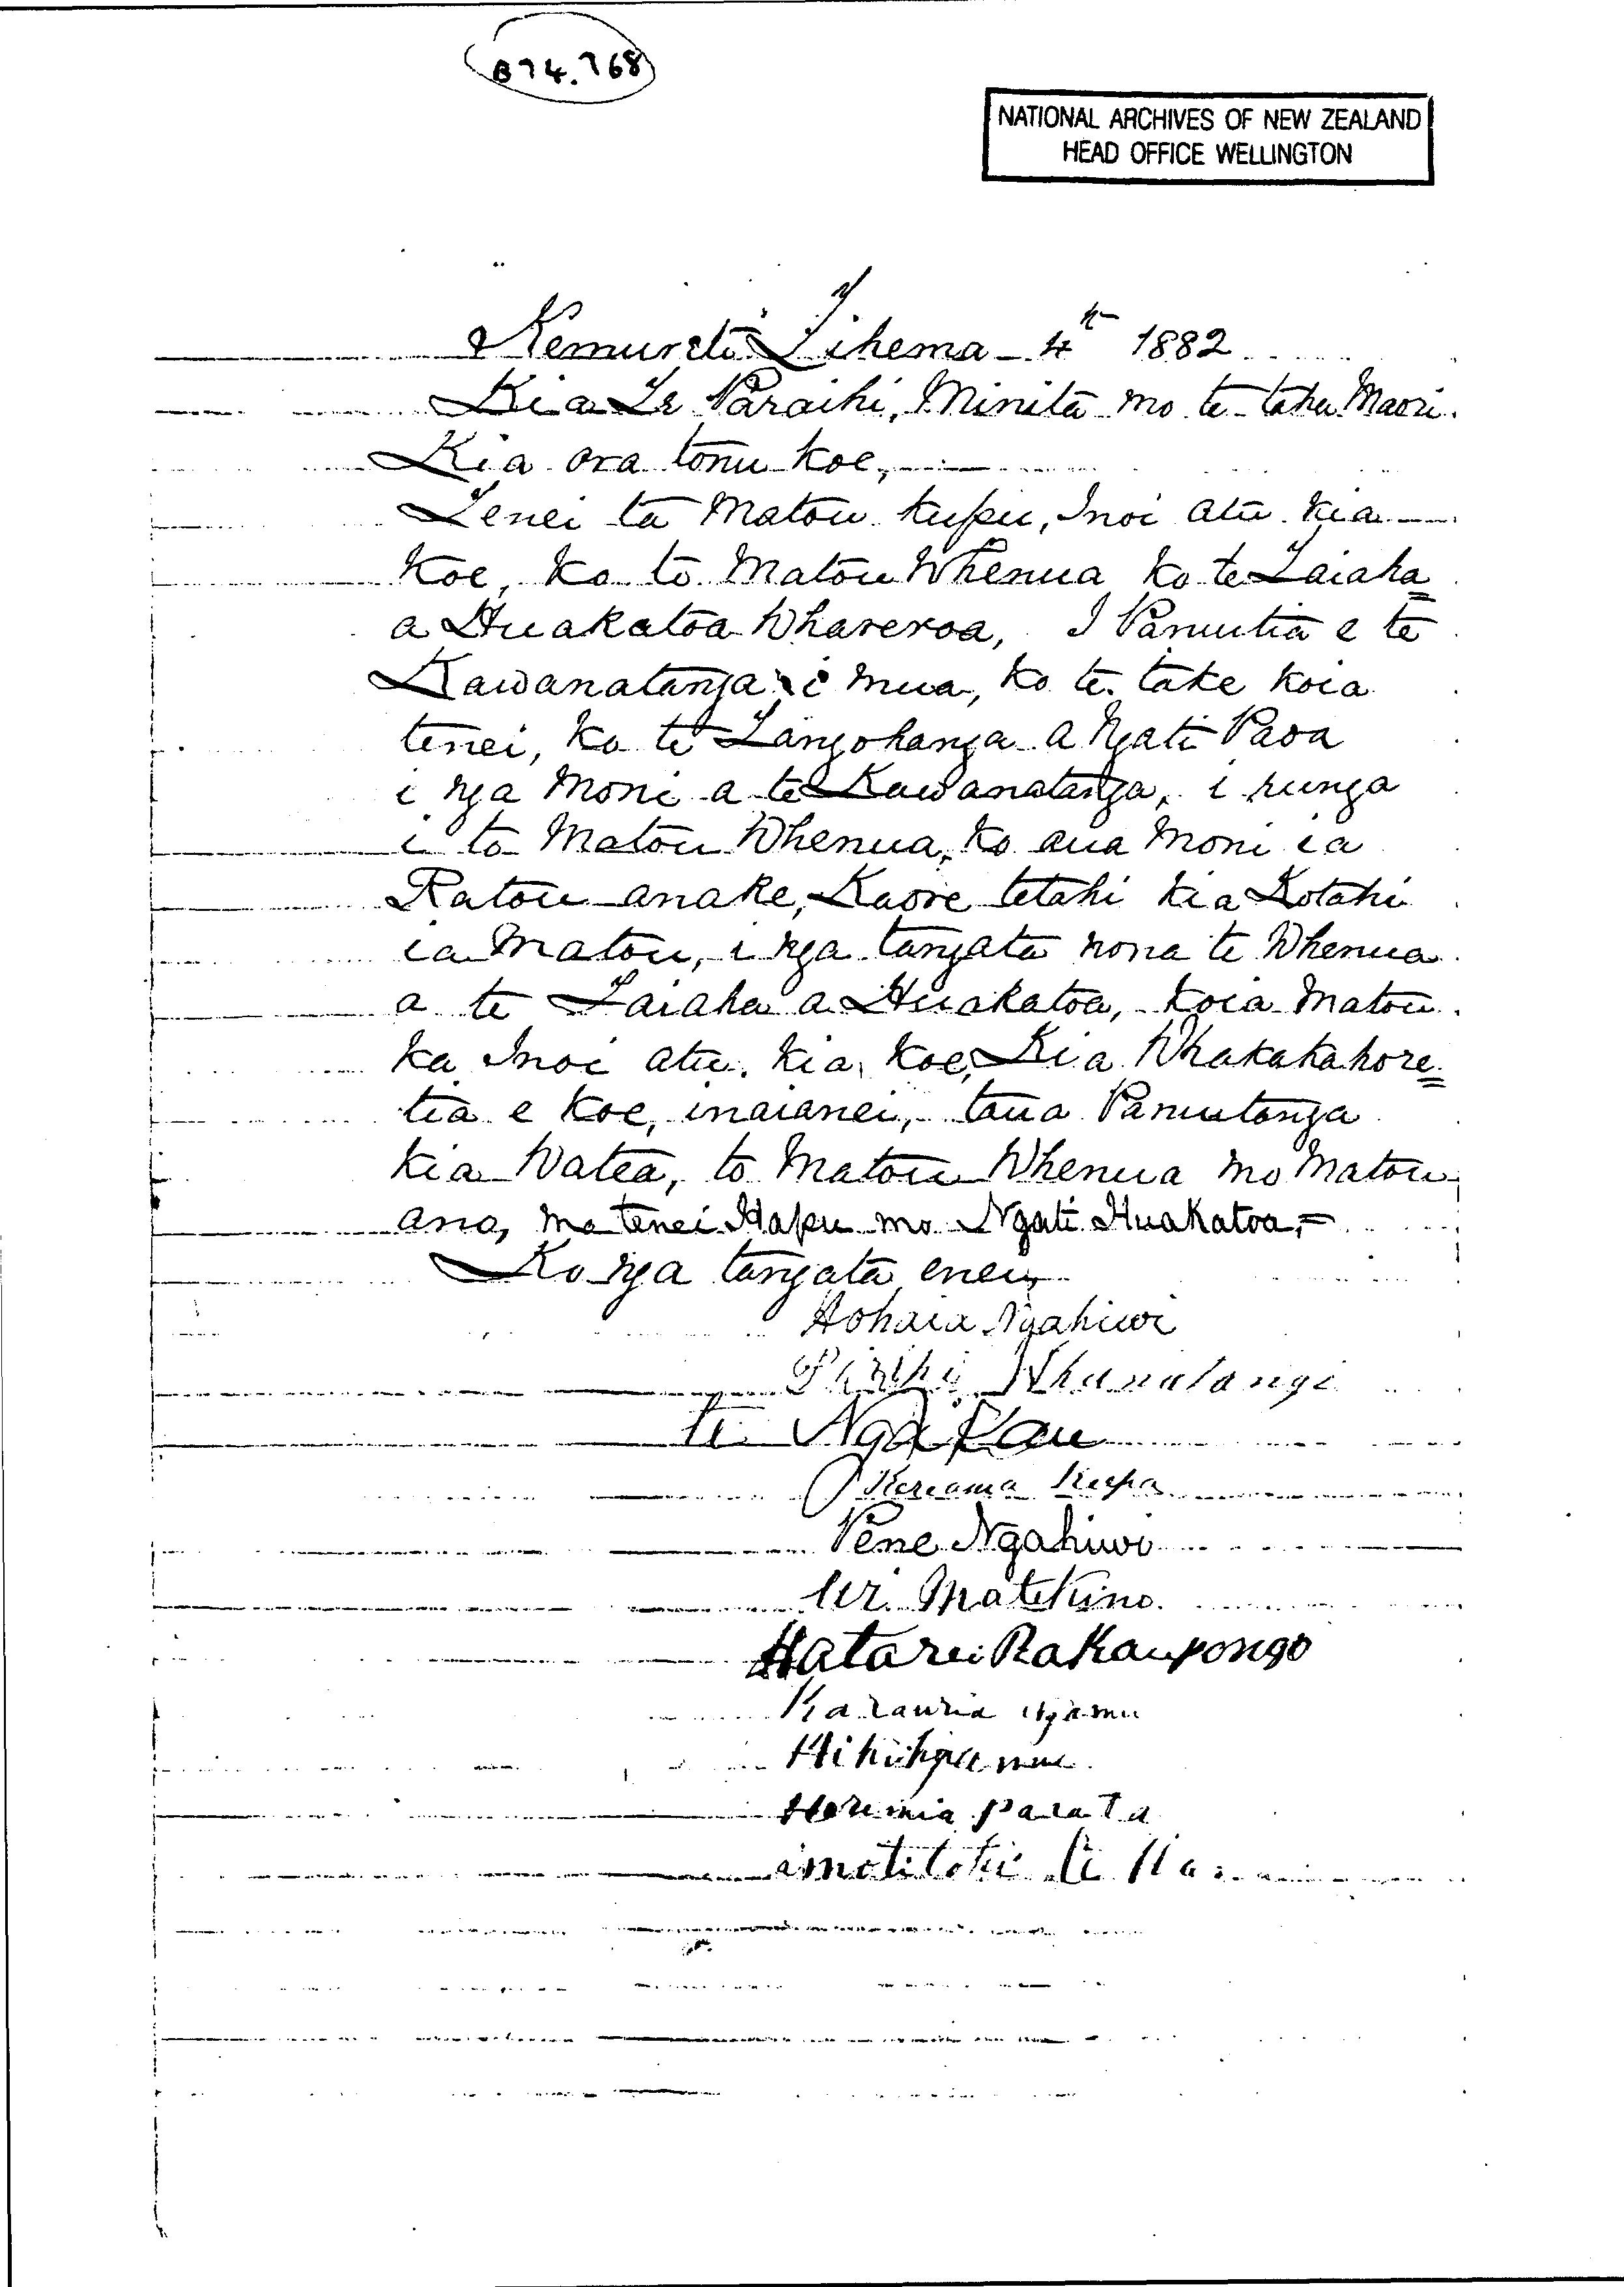 874.768
NATIONAL ARCHIVES OF NEW ZEALAND
HEAD OFFICE WELLINGTON
Kemureti Tihema 4th 1882
Kia Te Paraihi, Minita mo te taha Maori.
Kia ora tonu koe,
Tenei ta Matou kupu, Inoi atu kia
koe, ko to Matou Whenua ko te Taiaha
a Huakatoa Whareroa, I Panuitia e te
Kawanatanga i mua, ko te take koia
tenei, ko te Tangohanga a Ngati Paoa
i nga Moni a te Kawanatanga, i runga
i to Matou Whenua, ko aua Moni ia
Ratou anake, Kaore tetahi kia Kotahi
ia Matou, i nga tangata nona te Whenua
a te Taiaha a Huakatoa, koia Matou
ka Inoi atu kia koe, Kia Whakakahore=
tia e koe, inaianei, taua Panuitanga
kia Watea, to Matou Whenua mo Matou
ano, mo tenei Hapu mo Ngati Huakatoa,=
Ko nga tangata enei,
Hohaia Ngahiwi
Te Ngakau
Kereama Keepa
Pene Ngahiwi
Wi Matekino
Hatarei Rakaupongo
Karauria
Parata